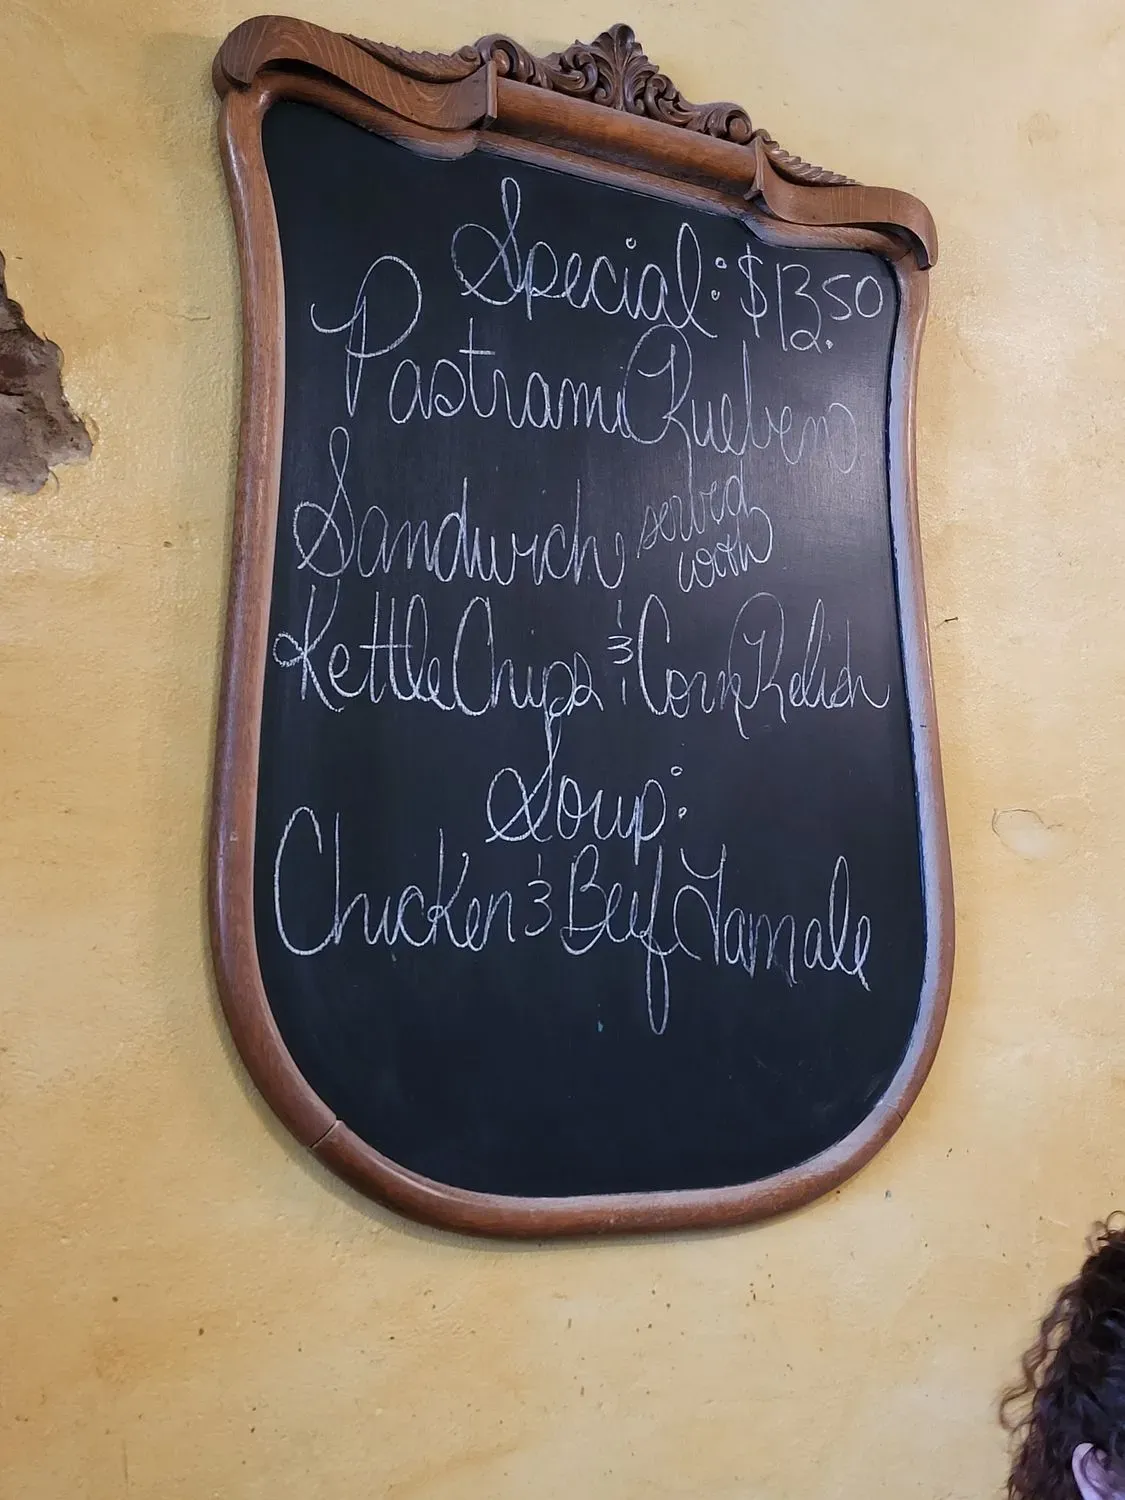 Special: $13.50
Pastrami Rueben
Sandwich served
with
Kettle Chips & Corn Relish
Soup:
Chicken & Beef Tamale